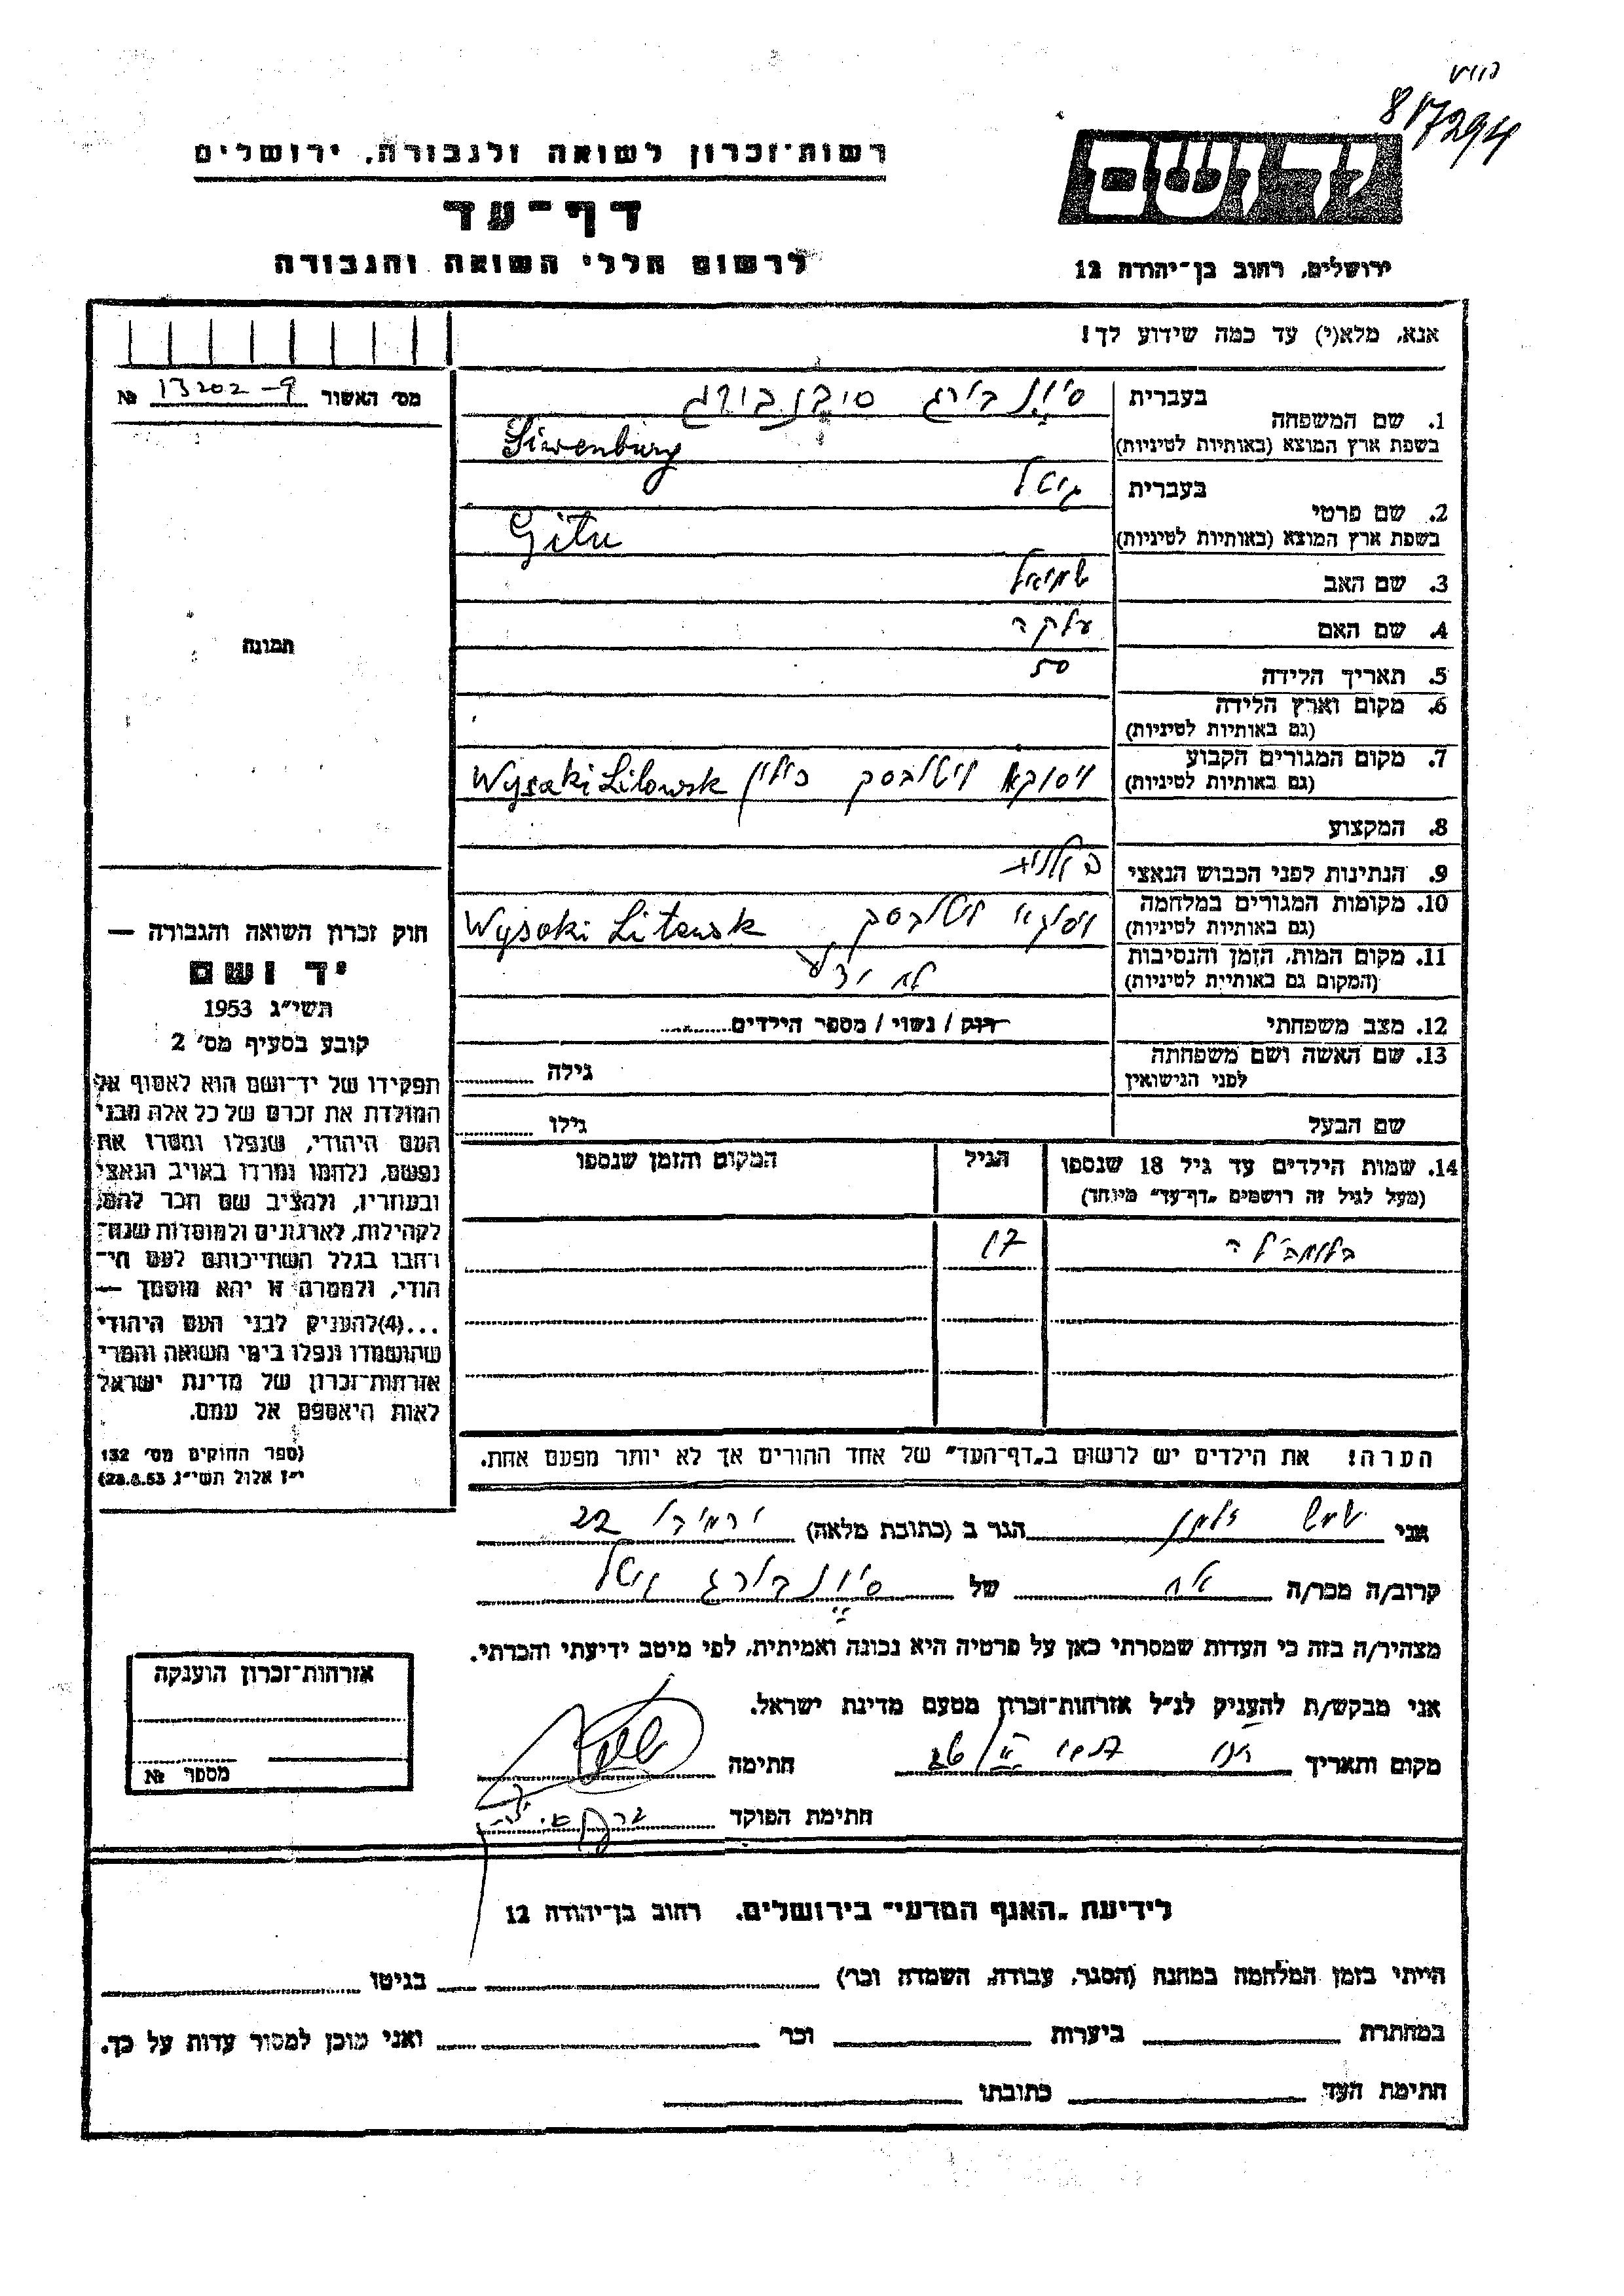 817294
רשות־זכרון לשואה ולגבורה, ירושלים
דף־עד
לרשום חללי השואה והגבורה
ירושלים, רחוב בן־יהודה 12
אנא, מלא(י) עד כמה שידוע לך!
מס׳ האשור 13202-9 №
בעברית
1. שם המשפחה
סיונבורג סיבנבורג
בשפת ארץ המוצא (באותיות לטיניות)
Siwenburg
בעברית
2. שם פרטי
גיטל
בשפת ארץ המוצא (באותיות לטיניות)
Gitu
3. שם האב שמואל
4. שם האם
5. תאריך הלידה 50
6. מקום וארץ הלידה
(גם באותיות לטיניות)
7. מקום המגורים הקבוע
(גם באותיות לטיניות)
פולין Wysoki Litowsk
8. המקצוע
9. הנתינות לפני הכבוש הנאצי
10. מקומות המגורים במלחמה
(גם באותיות לטיניות)
Wysoki Litewsk
11. מקום המות, הזמן והנסיבות
(המקום גם באותיות לטיניות)
לא ידוע
12. מצב משפחתי רוק / נשוי / מספר הילדים
13. שם האשה ושם משפחתה
לפני הנישואין
גילה
שם הבעל גילו
14. שמות הילדים עד גיל 18 שנספו הגיל המקום והזמן שנספו
(מעל לגיל זה רושמים „דף־עד״ מיוחד)
17
הערה! את הילדים יש לרשום ב„דף־העד״ של אחד ההורים אך לא יותר מפעם אחת.
תמונה
חוק זכרון השואה והגבורה —
יד ושם
תשי״ג 1953
קובע בסעיף מס׳ 2
תפקידו של יד־ושם הוא לאסוף אל
המולדת את זכרם של כל אלה מבני
העם היהודי, שנפלו ומסרו את
נפשם, נלחמו ומרדו באויב הנאצי
ובעוזריו, ולהציב שם וזכר להם,
לקהילות, לארגונים ולמוסדות שנח־
רבו בגלל השתייכותם לעם הי־
הודי, ולמטרה זו יהא מוסמך —
...(4)להעניק לבני העם היהודי
שהושמדו ונפלו בימי השואה והמרי
אזרחות־זכרון של מדינת ישראל
לאות היאספם אל עמם.
(ספר החוקים מס׳ 132
י״ז אלול תשי״ג 28.8.53)
אני הגר ב (כתובת מלאה) 22
קרוב/ה מכר/ה אח של סיונבורג גיטל
מצהיר/ה בזה כי העדות שמסרתי כאן על פרטיה היא נכונה ואמיתית, לפי מיטב ידיעתי והכרתי.
אני מבקש/ת להעניק לנ״ל אזרחות־זכרון מטעם מדינת ישראל.
מקום ותאריך חתימה
חתימת הפוקד
אזרחות־זכרון הוענקה
מספר №
לידיעת „האגף המדעי״ בירושלים, רחוב בן־יהודה 12
הייתי בזמן המלחמה במחנה (הסגר, עבודה, השמדה וכו׳) בגיטו
במחתרת ביערות וכו׳ ואני מוכן למסור עדות על כך.
חתימת העד כתובתו